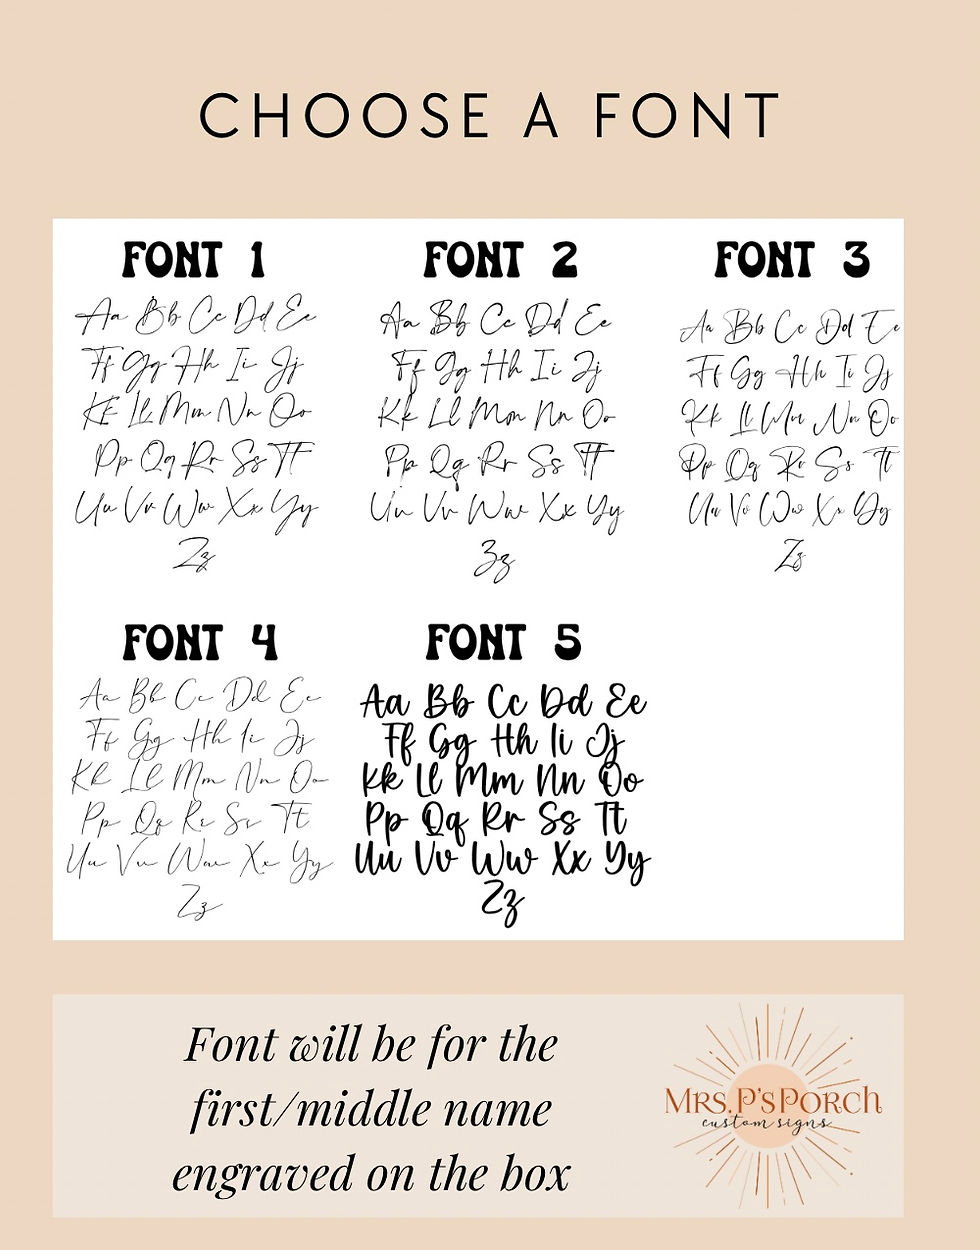 CHOOSE A FONT
FONT 1
Aa Bb Cc Dd Ee
Ff Gg Hh Ii Jj
Kk Ll Mm Nn Oo
Pp Qq Rr Ss Tt
Uu Vv Ww Xx Yy
Zz
FONT 2
Aa Bb Cc Dd Ee
Ff Gg Hh Ii Jj
Kk Ll Mm Nn Oo
Pp Qq Rr Ss Tt
Uu Vv Ww Xx Yy
Zz
FONT 3
Aa Bb Cc Dd Ee
Ff Gg Hh Ii Jj
Kk Ll Mm Nn Oo
Pp Qq Rr Ss Tt
Uu Vv Ww Xx Yy
Zz
FONT 4
Aa Bb Cc Dd Ee
Ff Gg Hh Ii Jj
Kk Ll Mm Nn Oo
Pp Qq Rr Ss Tt
Uu Vv Ww Xx Yy
Zz
FONT 5
Aa Bb Cc Dd Ee
Ff Gg Hh Ii Jj
Kk Ll Mm Nn Oo
Pp Qq Rr Ss Tt
Uu Vv Ww Xx Yy
Zz
Font will be for the
first/middle name
engraved on the box
MRS. P'S PORCH
custom signs